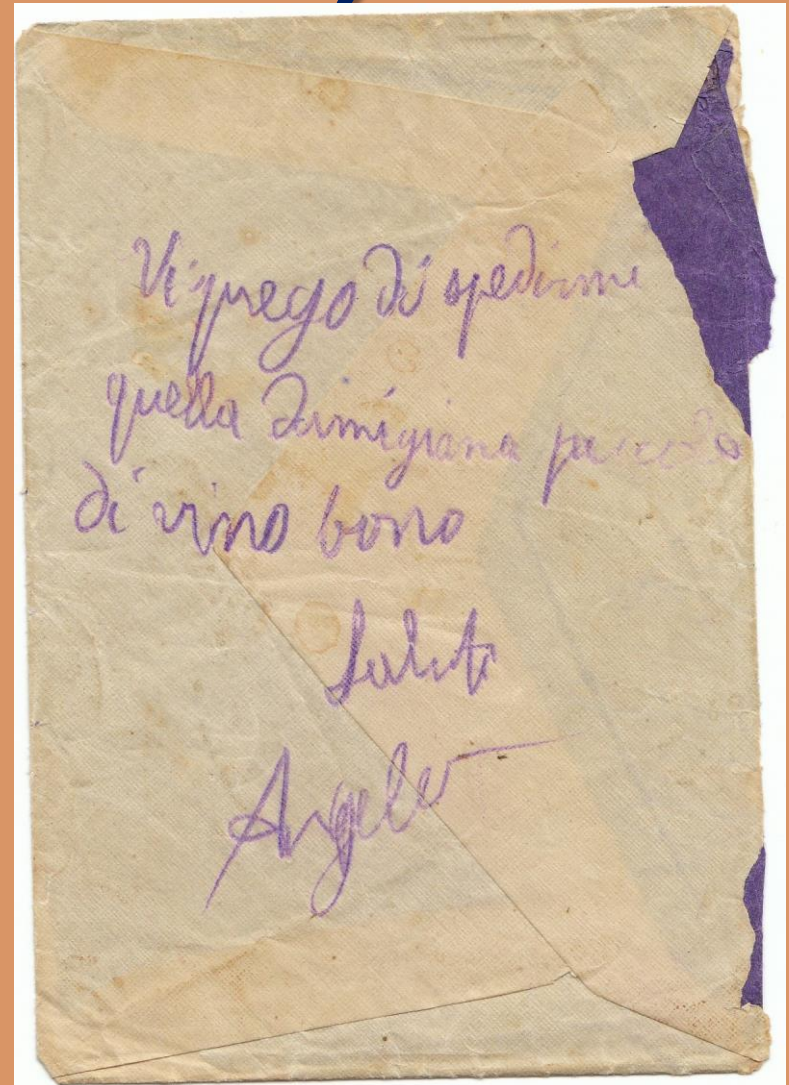 Vi prego di spedirmi
quella damigiana piccola
di vino bono
Saluti
Angelo